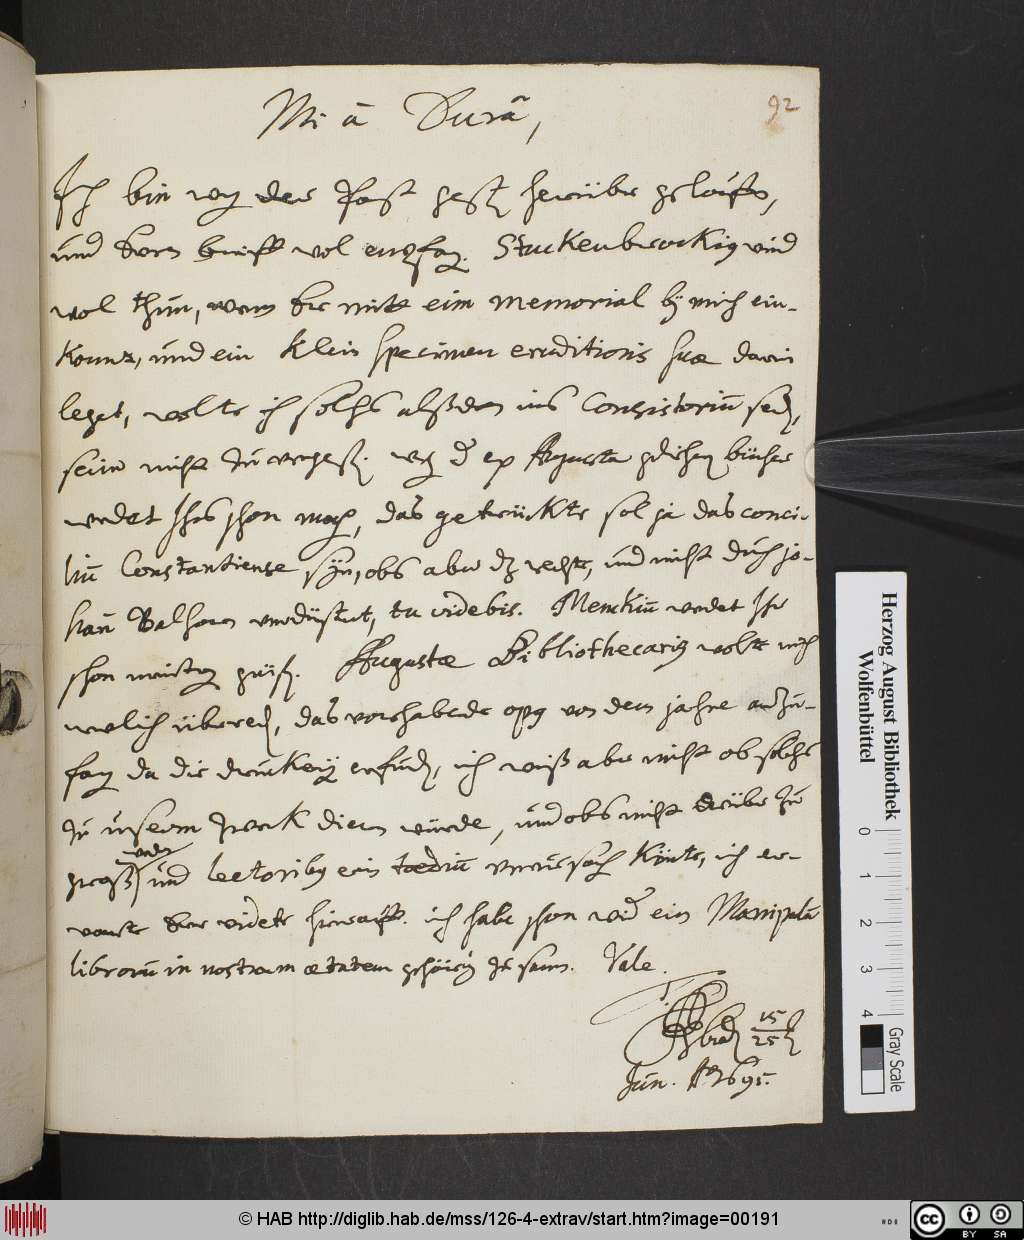 Mi à Durã,
92
Ich bin wg der Post gest herüber gelauffn,
und dern brieff wol empfag. Stuckenbrockig wird
wol thun, wenn Er mitt eim memorial bÿ mich ein-
kommt, und ein klein specimen eruditionis suæ darin
leget, wolte ich solchs alßden ins Consistoriũ sed,
seinr nicht zu vergeß. weg d ex Augusta gdachen bücher
werdet Ihrs schon mach, das getrückte sol ja das conci-
liũ Constantiense sÿn, obs aber dz rechte, und nicht durch jo-
han Balhorn verdüstert, tu videbis. Menckiũ werdet Ihr
schon grüß. Augustæ Bibliothecarig wolte mich
welich übered, das vorhabende opg von dem jahre anzu-
fang da die druckerÿ erfund, ich weiß aber nicht ob solchs
zu unserm zweck dienen würde, und obs nicht drüber zu
werden
groß und lectoribg ein tædiũ verursach könte, ich er-
warte hierauff. ich habe schon wid ein Manipulũ
librorũ in nostram ætatem gehörig zu sam. Vale.
T.
15
25
Jun. Aº 1695.
Herzog August Bibliothek
Wolfenbüttel
0 1 2 3 4
Gray Scale
© HAB http://diglib.hab.de/mss/126-4-extrav/start.htm?image=00191
cc BY SA